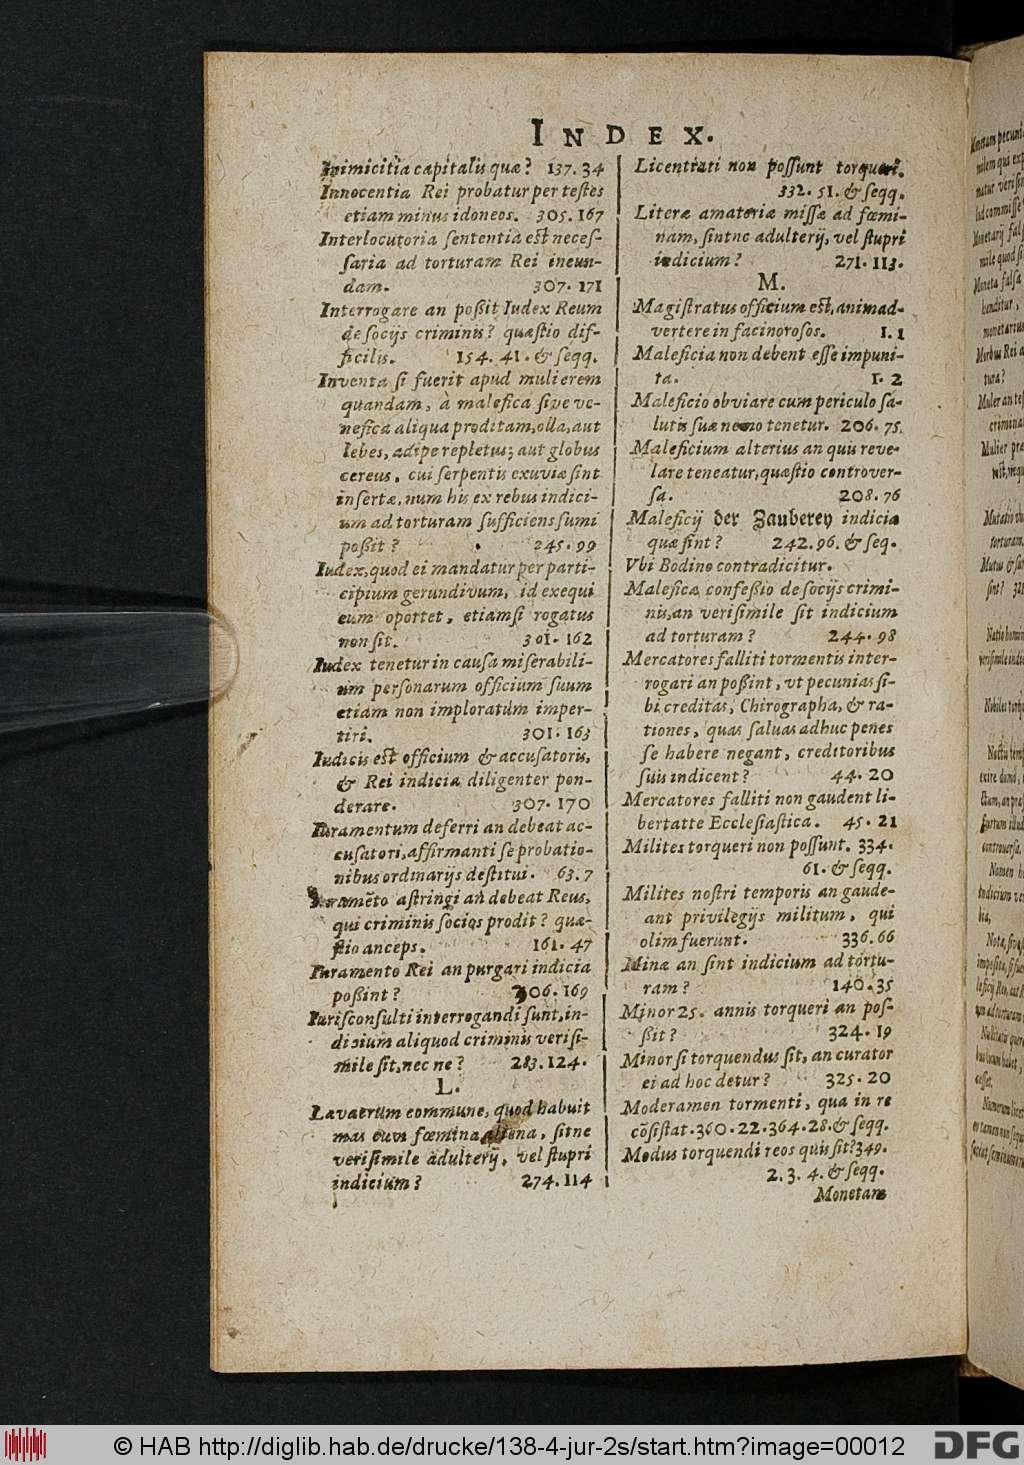 INDEX.
Inimicitia capitalis quæ? 137. 34
Innocentia Rei probatur per testes
etiam minus idoneos. 305. 167
Interlocutoria sententia est neces-
saria ad torturam Rei ineun-
dam. 307. 171
Interrogare an poßit Iudex Reum
de socijs criminis? quæstio dif-
ficilis. 154. 41. & seqq.
Inventa si fuerit apud mulierem
quandam, à malefica sive ve-
nefica aliqua proditam, olla, aut
lebes, adipe repletus; aut globus
cereus, cui serpentis exuviæ sint
insertæ, num his ex rebus indici-
um ad torturam sufficiens sumi
poßit? 245. 99
Iudex, quod ei mandatur per parti-
cipium gerundivum, id exequi
eum oportet, etiamsi rogatus
non sit. 301. 162
Iudex tenetur in causa miserabili-
um personarum officium suum
etiam non imploratum imper-
tiri. 301. 163
Iudicis est officium & accusatoris,
& Rei indicia diligenter pon-
derare. 307. 170
Iuramentum deferri an debeat ac-
cusatori, affirmanti se probatio-
nibus ordinarijs destitui. 63. 7
Iuramẽto astringi an debeat Reus,
qui criminis socios prodit? quæ-
stio anceps. 161. 47
Iuramento Rei an purgari indicia
poßint? 306. 169
Iurisconsulti interrogandi sunt, in-
dicium aliquod criminis verisi-
mile sit, nec ne? 283. 124.
L.
Lavacrum commune, quod habuit
mas cum fœmina aliena, sitne
verisimile adulterij, vel stupri
indicium? 274. 114
Licentiati non possunt torqueri.
332. 51. & seqq.
Literæ amatoriæ missæ ad fœmi-
nam, sintne adulterij, vel stupri
indicium? 271. 113.
M.
Magistratus officium est, animad-
vertere in facinorosos. 1. 1
Maleficia non debent esse impuni-
ta. 1. 2
Maleficio obviare cum periculo sa-
lutis suæ nemo tenetur. 206. 75.
Maleficium alterius an quis reve-
lare teneatur, quæstio controver-
sa. 208. 76
Maleficij der Zauberey indicia
quæ sint? 242. 96. & seq.
Vbi Bodino contradicitur.
Maleficæ confeßio de socijs crimi-
nis, an verisimile sit indicium
ad torturam? 244. 98
Mercatores falliti tormentis inter-
rogari an poßint, vt pecunias si-
bi creditas, Chirographa, & ra-
tiones, quas saluas adhuc penes
se habere negant, creditoribus
suis indicent? 44. 20
Mercatores falliti non gaudent li-
bertatte Ecclesiastica. 45. 21
Milites torqueri non possunt. 334.
61. & seqq.
Milites nostri temporis an gaude-
ant privilegijs militum, qui
olim fuerunt. 336. 66
Minæ an sint indicium ad tortu-
ram? 140. 35
Minor 25. annis torqueri an pos-
ßit? 324. 19
Minor si torquendus sit, an curator
ei ad hoc detur? 325. 20
Moderamen tormenti, qua in re
cõsistat. 360. 22. 364. 28. & seqq.
Modus torquendi reos quis sit? 349.
2. 3. 4. & seqq.
Monetam
© HAB http://diglib.hab.de/drucke/138-4-jur-2s/start.htm?image=00012
DFG